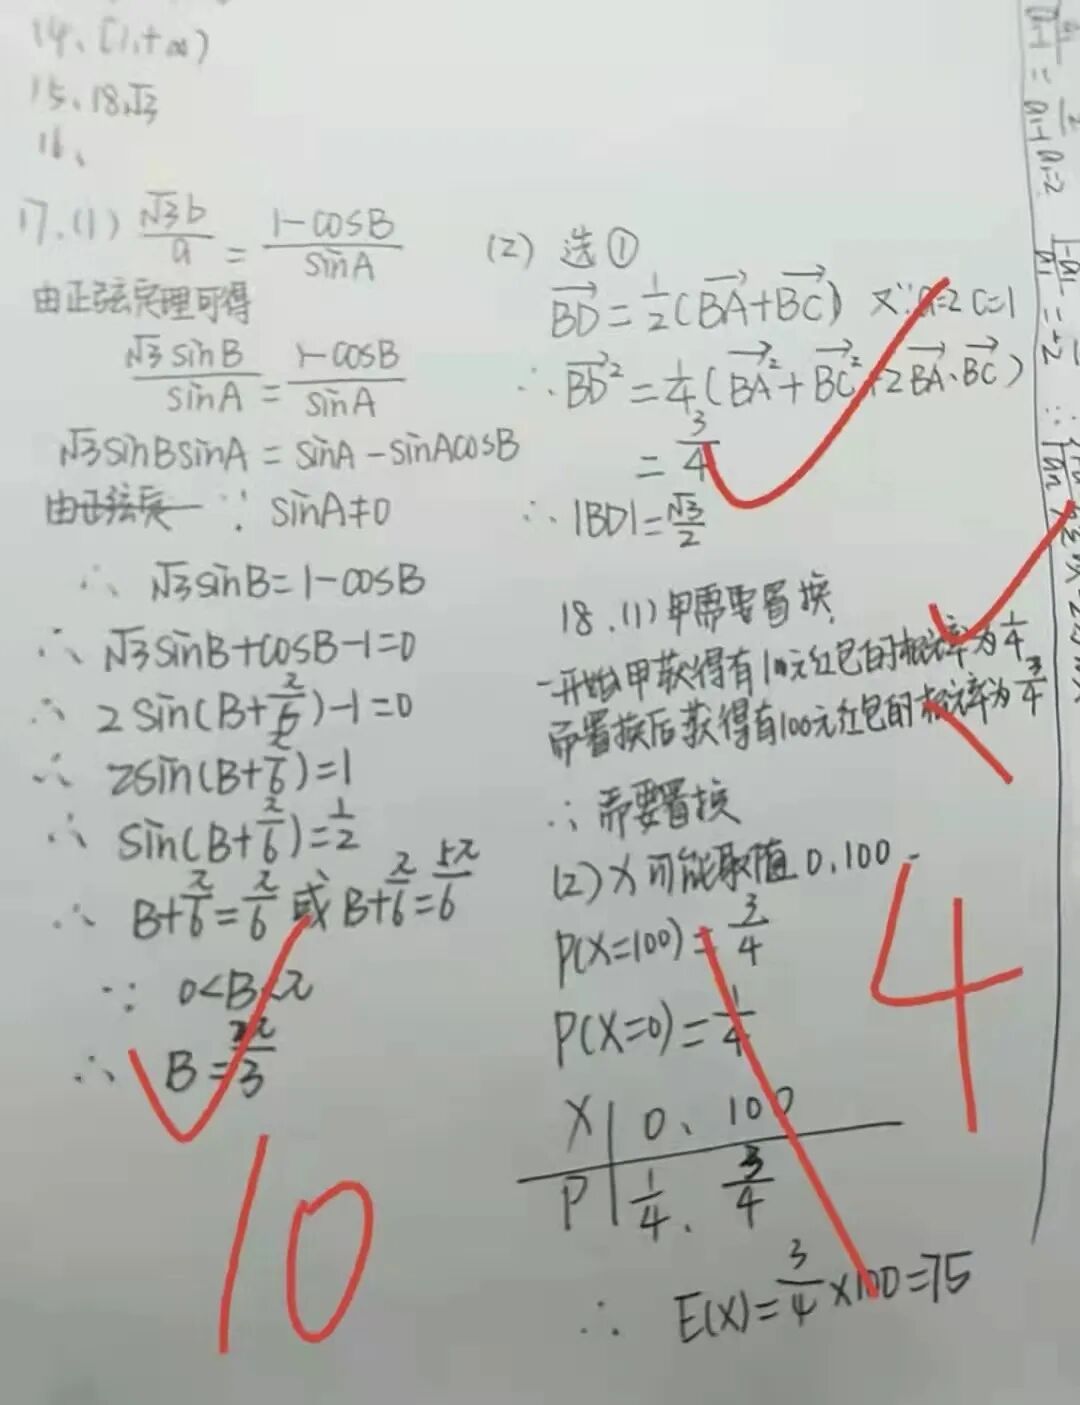 14、[1,+∞)
15、18√3
16、
17.(1) √3b/a = 1-cosB/sinA
由正弦定理可得
√3sinB/sinA = 1-cosB/sinA
√3sinBsinA = sinA-sinAcosB
∵ sinA≠0
∴ √3sinB=1-cosB
∴ √3sinB+cosB-1=0
∴ 2sin(B+π/6)-1=0
∴ 2sin(B+π/6)=1
∴ sin(B+π/6)=1/2
∴ B+π/6=π/6 或 B+π/6=5π/6
∵ 0<B<π
∴ B=2π/3
10
(2) 选①
BD→=1/2(BA→+BC→) 又∵a=2 c=1
∴ BD→²=1/4(BA→²+BC→²+2BA→·BC→)
=3/4
∴ |BD|=√3/2
18.(1)甲需要置换
一开始甲获得有100元红包的概率为1/4
而置换后获得有100元红包的概率为3/4
∴ 需要置换
(2) X可能取值0,100
P(X=100)=3/4
P(X=0)=1/4
X 0、100
P 1/4、3/4
∴ E(X)=3/4×100=75
4